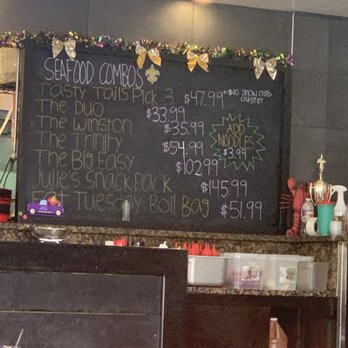 SEAFOOD COMBOS
Tasty Tails Pick 3 $47.99 +$10 snow crab cluster
The Duo $33.99
The Winston $35.99
The Trinity $54.99
The Big Easy $102.99
Julie's Snack Pack $145.99
Tuesday Boil Bag $51.99
ADD
NOODLES
$3.99